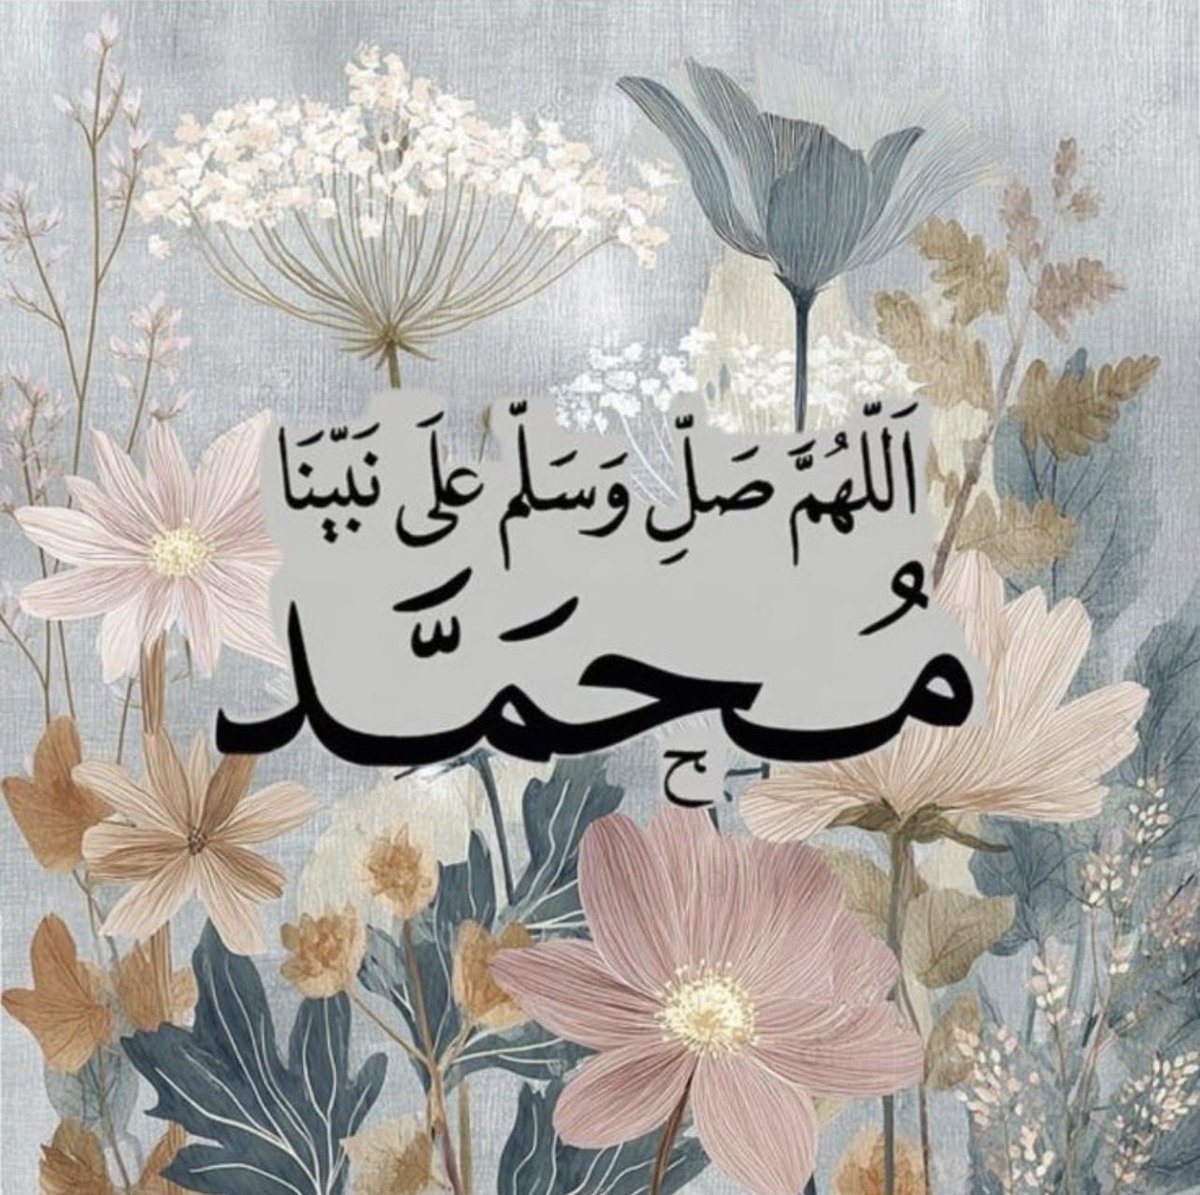 اَللّهُمَّ صَلِّ وَسَلّم علَى نَبّينَا
مُحمَّد